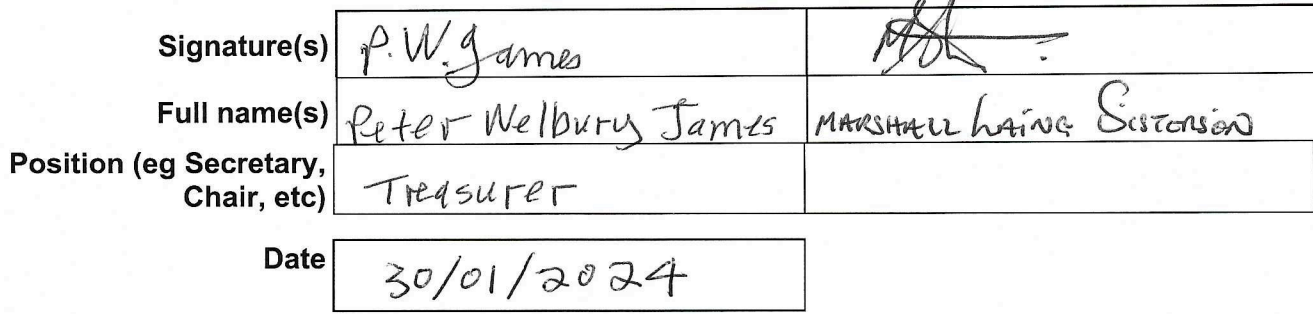 Signature(s) P.W. James
Full name(s) Peter Welbury James MARSHALL LAING SISTERSON
Position (eg Secretary,
Chair, etc) Treasurer
Date 30/01/2024